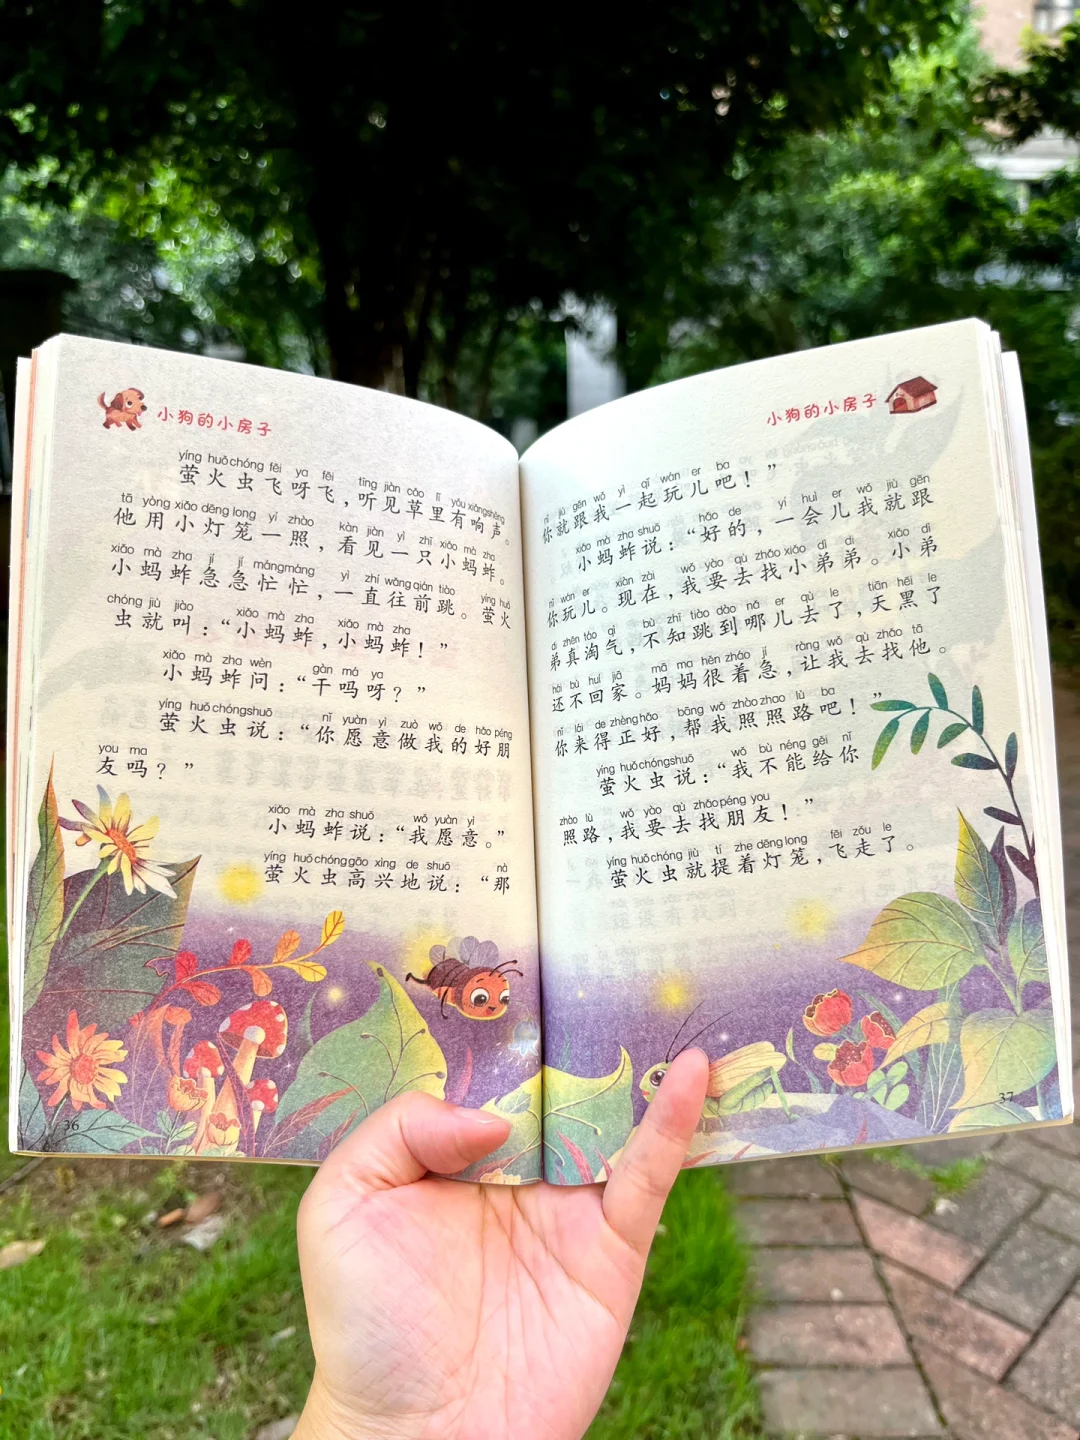 小狗的小房子
yíng huǒ chóng fēi ya fēi tīng jiàn cǎo lǐ yǒu xiǎng shēng
萤火虫飞呀飞，听见草里有响声。
tā yòng xiǎo dēng long yí zhào kàn jiàn yì zhī xiǎo mà zha
他用小灯笼一照，看见一只小蚂蚱。
xiǎo mà zha jí jí máng máng yì zhí wǎng qián tiào yíng huǒ
小蚂蚱急急忙忙，一直往前跳。萤火
chóng jiù jiào xiǎo mà zha xiǎo mà zha
虫就叫：“小蚂蚱，小蚂蚱！”
xiǎo mà zha wèn gàn má ya
小蚂蚱问：“干吗呀？”
yíng huǒ chóng shuō nǐ yuàn yì zuò wǒ de hǎo péng
萤火虫说：“你愿意做我的好朋
you ma
友吗？”
xiǎo mà zha shuō wǒ yuàn yì
小蚂蚱说：“我愿意。”
yíng huǒ chóng gāo xìng de shuō nà
萤火虫高兴地说：“那
36
小狗的小房子
nǐ jiù gēn wǒ yì qǐ wán er ba
你就跟我一起玩儿吧！”
xiǎo mà zha shuō hǎo de yí huì er wǒ jiù gēn
小蚂蚱说：“好的，一会儿我就跟
nǐ wán er xiàn zài wǒ yào qù zhǎo xiǎo dì di xiǎo dì
你玩儿。现在，我要去找小弟弟。小弟
di zhēn táo qì bù zhī tiào dào nǎ er qù le tiān hēi le
弟真淘气，不知跳到哪儿去了，天黑了
hái bù huí jiā mā ma hěn zháo jí ràng wǒ qù zhǎo tā
还不回家。妈妈很着急，让我去找他。
nǐ lái de zhèng hǎo bāng wǒ zhào zhao lù ba
你来得正好，帮我照照路吧！”
yíng huǒ chóng shuō wǒ bù néng gěi nǐ
萤火虫说：“我不能给你
zhào lù wǒ yào qù zhǎo péng you
照路，我要去找朋友！”
yíng huǒ chóng jiù tí zhe dēng long fēi zǒu le
萤火虫就提着灯笼，飞走了。
37